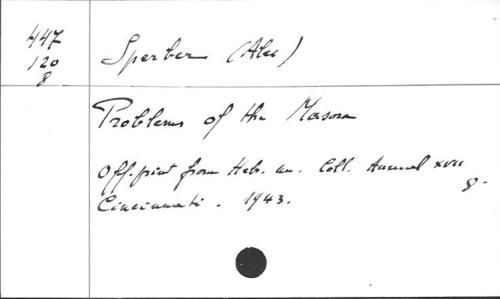 447
120
8
Sperber (Alec)
Problems of the Masora
Off-print from Heb. un. Coll. Annual XVII
8.
Cincinnati. 1943.